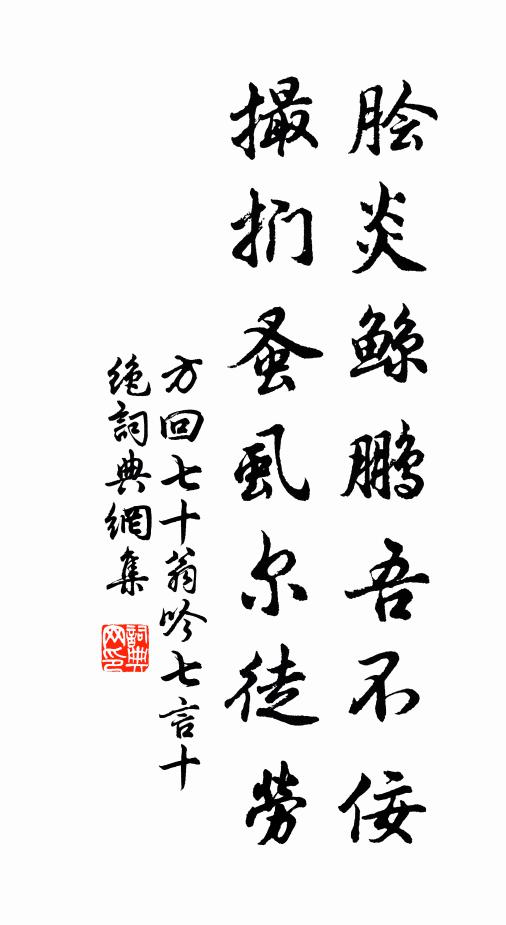 脍炎鲸鹏吾不佞
撮扪蚤虱尔徒勞
方回七十翁吟七言十
绝詞典網集
詞典网印